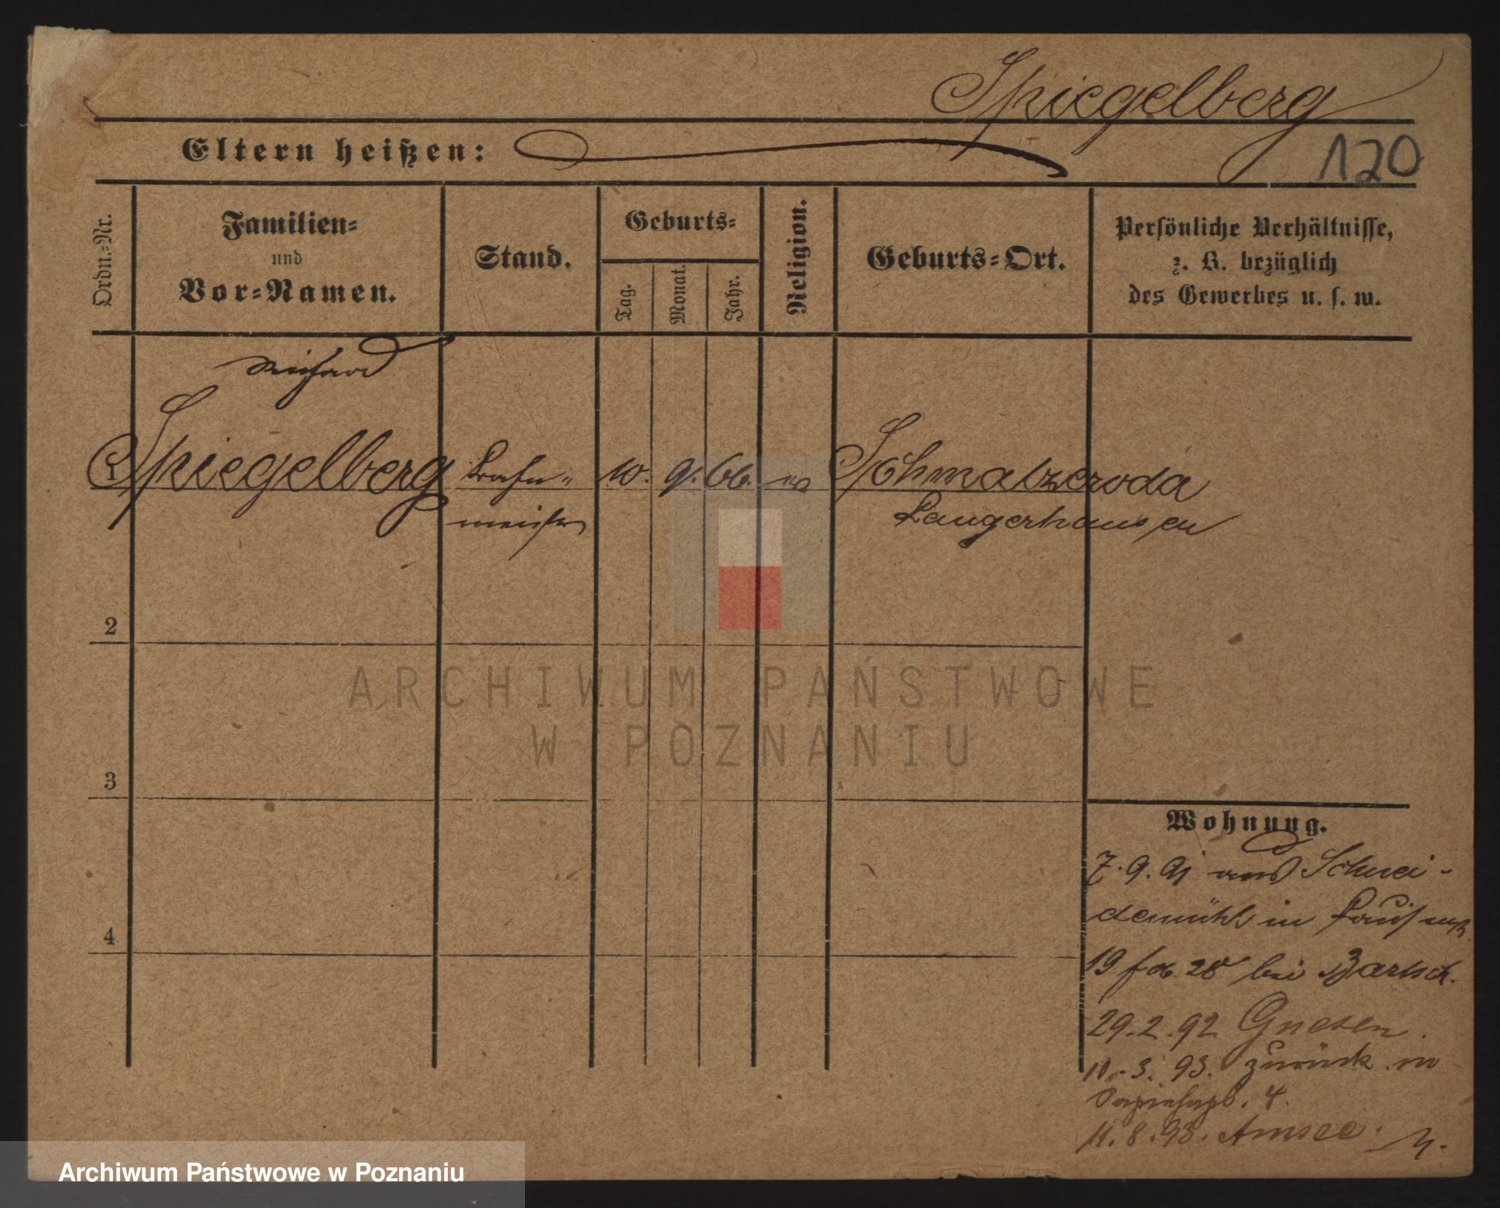 Spiegelberg
Eltern heißen:
120
Ordn.-Nr.
Familien-
und
Vor-Namen.
Stand.
Geburts-
Tag.
Monat.
Jahr.
Religion.
Geburts-Ort.
Persönliche Verhältnisse,
z. B. bezüglich
des Gewerbes u. s. w.
Richard
1 Spiegelberg
Bahn-
meister
10. 9. 66. ev
Schmalzeroda
Sangerhausen
2
3
4
ARCHIWUM PAŃSTWOWE
W POZNANIU
Wohnung.
7. 9. 91 aus Schnei-
demühl in
19 bei Bartsch.
29. 2. 92 Gnesen.
93. zurück in
4.
11. 8. 93. Amsee.
Archiwum Państwowe w Poznaniu